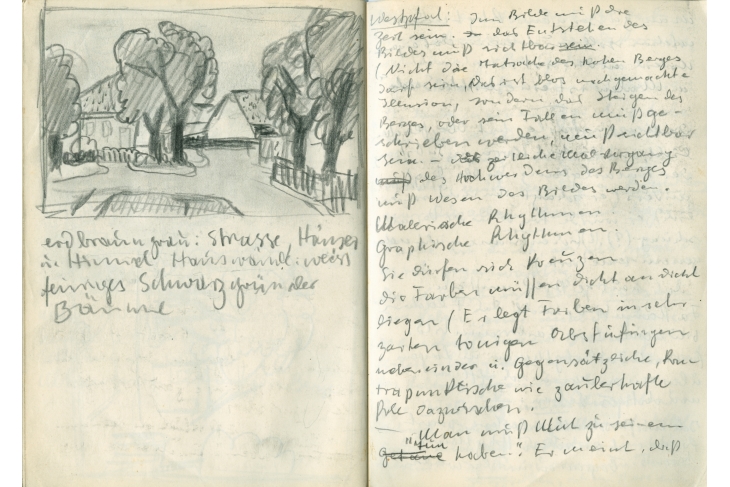 erdbraungrau: Strasse, Häuser
u. Himmel Hauswand: weiss
feuriges Schwarzgrün der
Bäume
Westpfal: Im Bilde muß die
Zeit sein. das Entstehen des
Bildes muß sichtbar sein.
(Nicht die Tatsache des hohen Berges
darf sein, das ist blos nachgemachte
Illusion, sondern das Steigen des
Berges, oder sein Fallen muß ge-
schrieben werden, muß sichtbar
sein. – zeitliche Malvorgang
muß des Hochwerdens des Berges
muß Wesen des Bildes werden.
Malerische Rhythmen
Graphische Rhythmen.
Sie dürfen sich kreuzen
die Farben müssen dicht an dicht
liegen (Er legt Farben in sehr
zarten tonigen
nebeneinder u. Gegensätzliche, Kon
trapunktische wie zauberhafte
Pole dazwischen.
– Man muß Mut zu seinem
"tun
getane haben". Er meint, daß